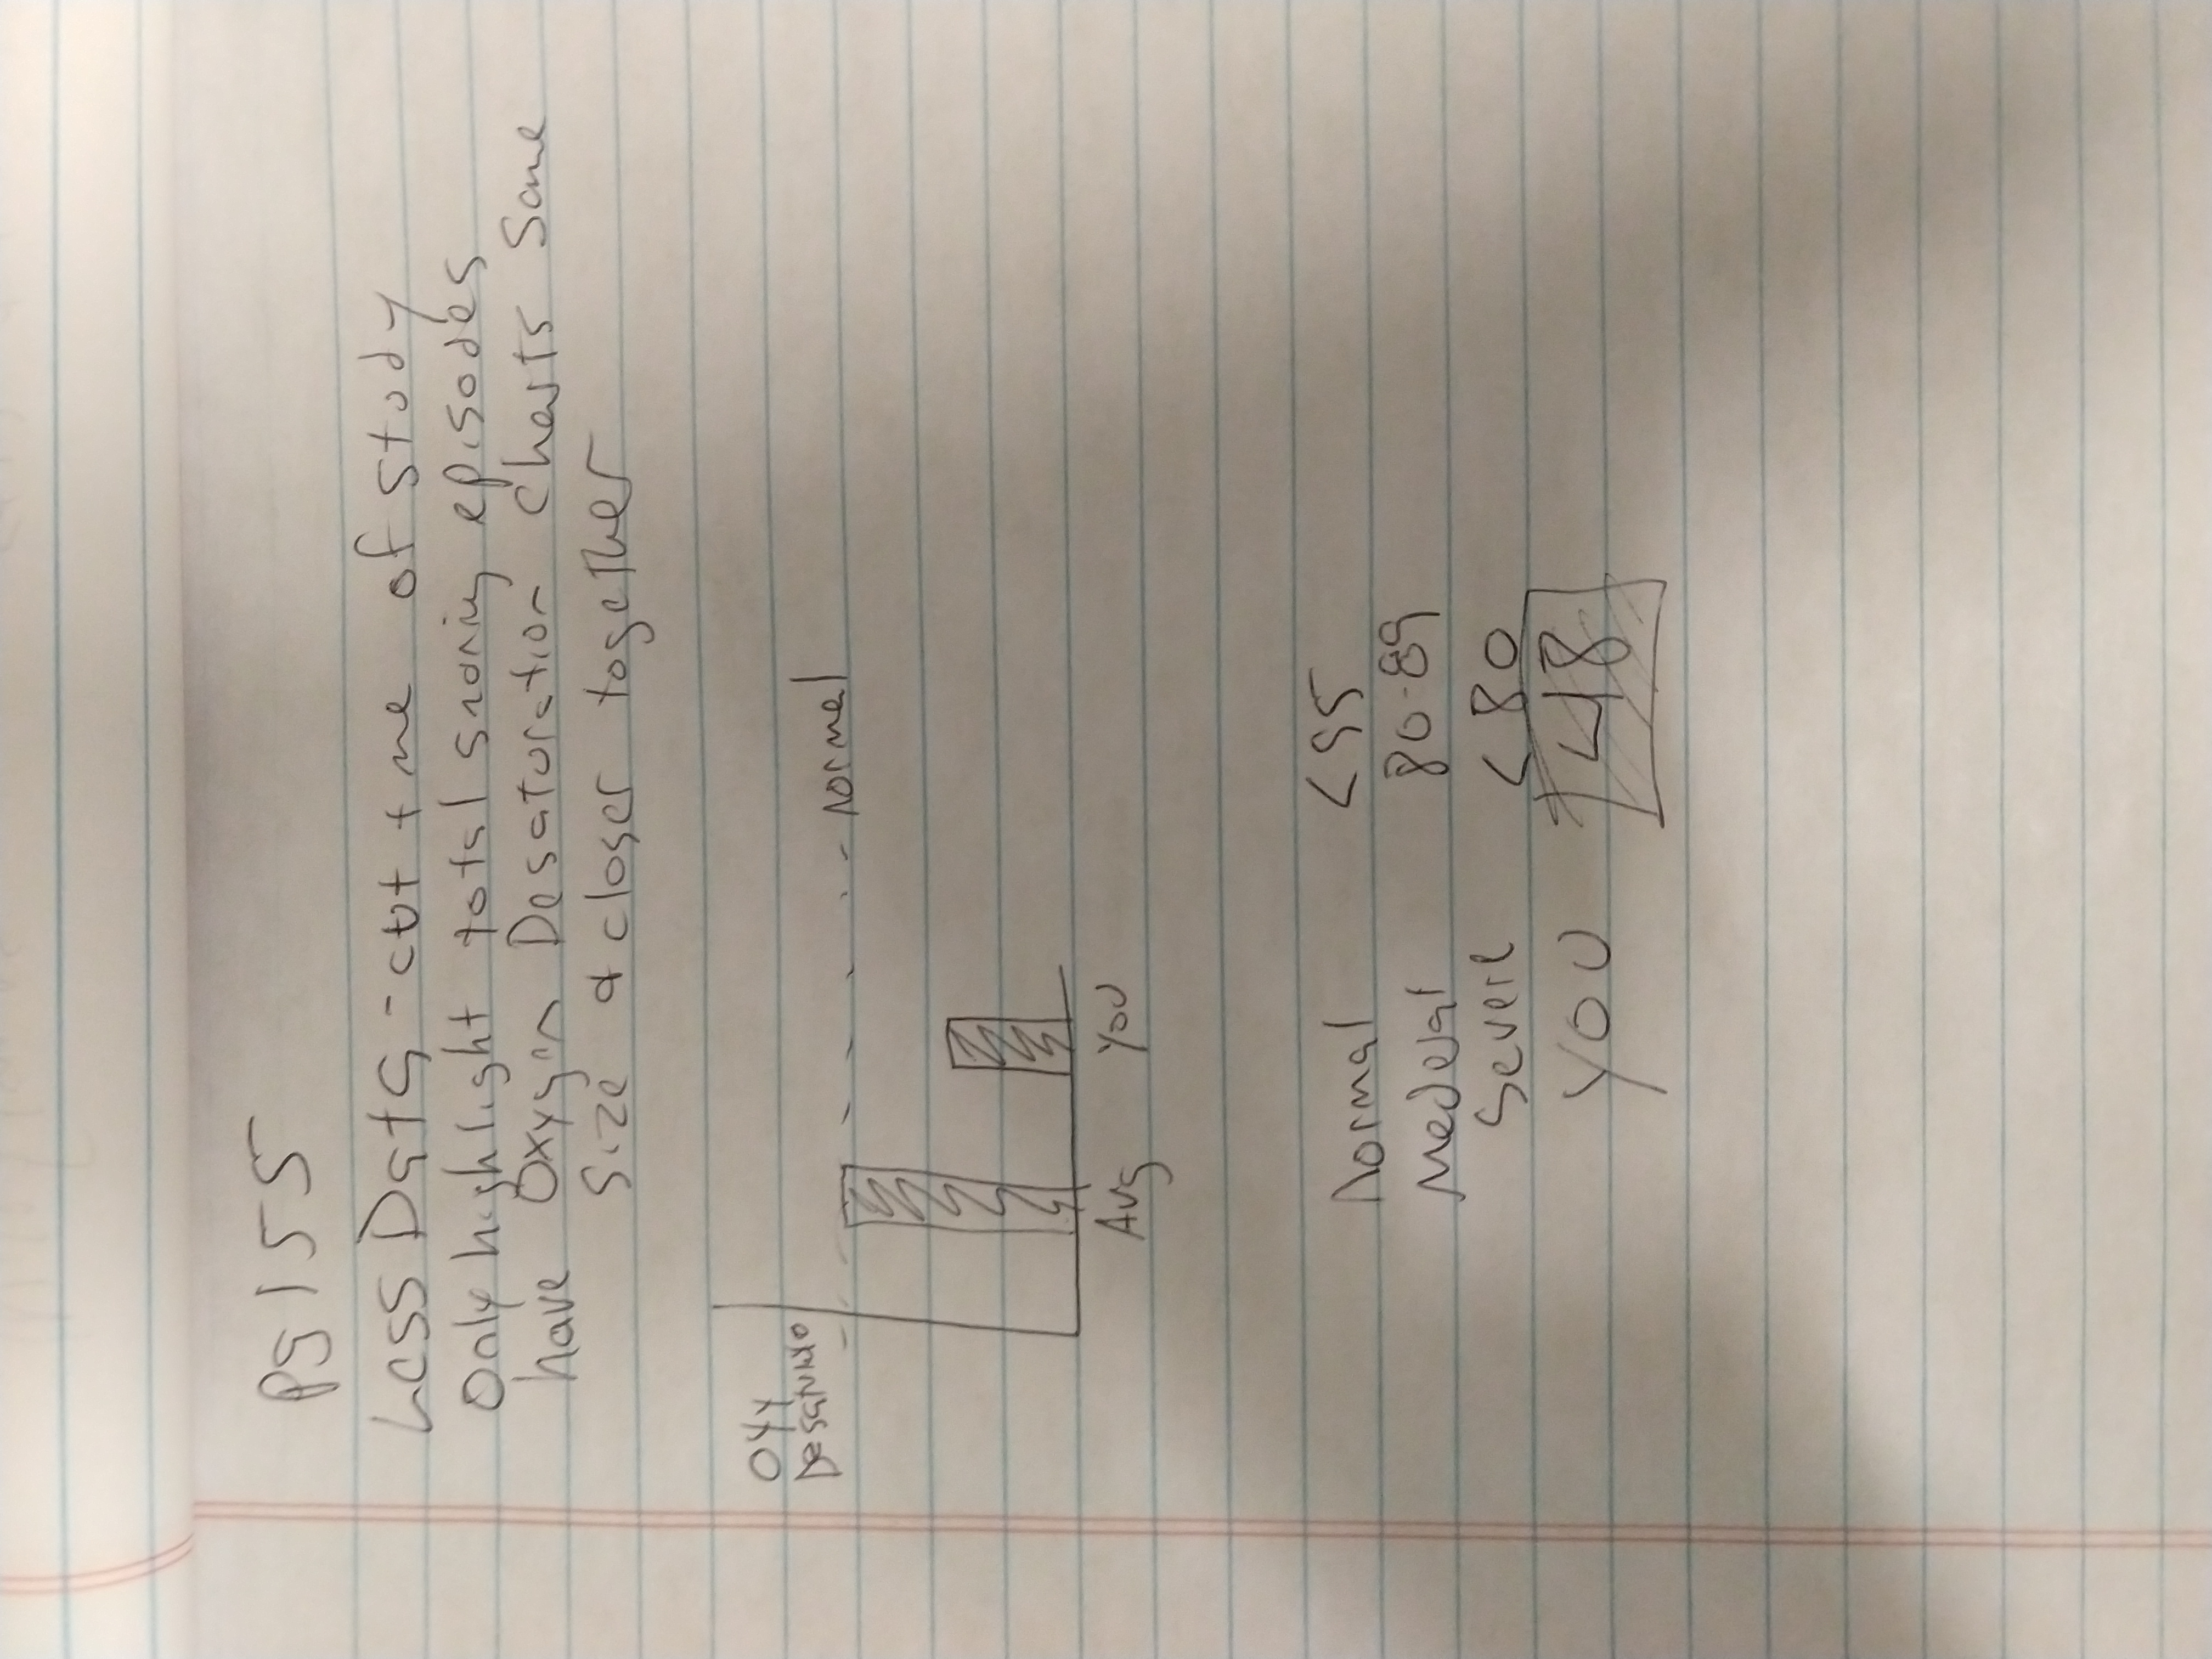 Pg 155
Less Data - cut time of study
Only highlight total snoring episodes
have Oxygen Desaturation Charts Same
Size & closer together
Oxy
Desaturatio
normal
Avg You
Normal <95
80-89
Severe <80
YOU 48